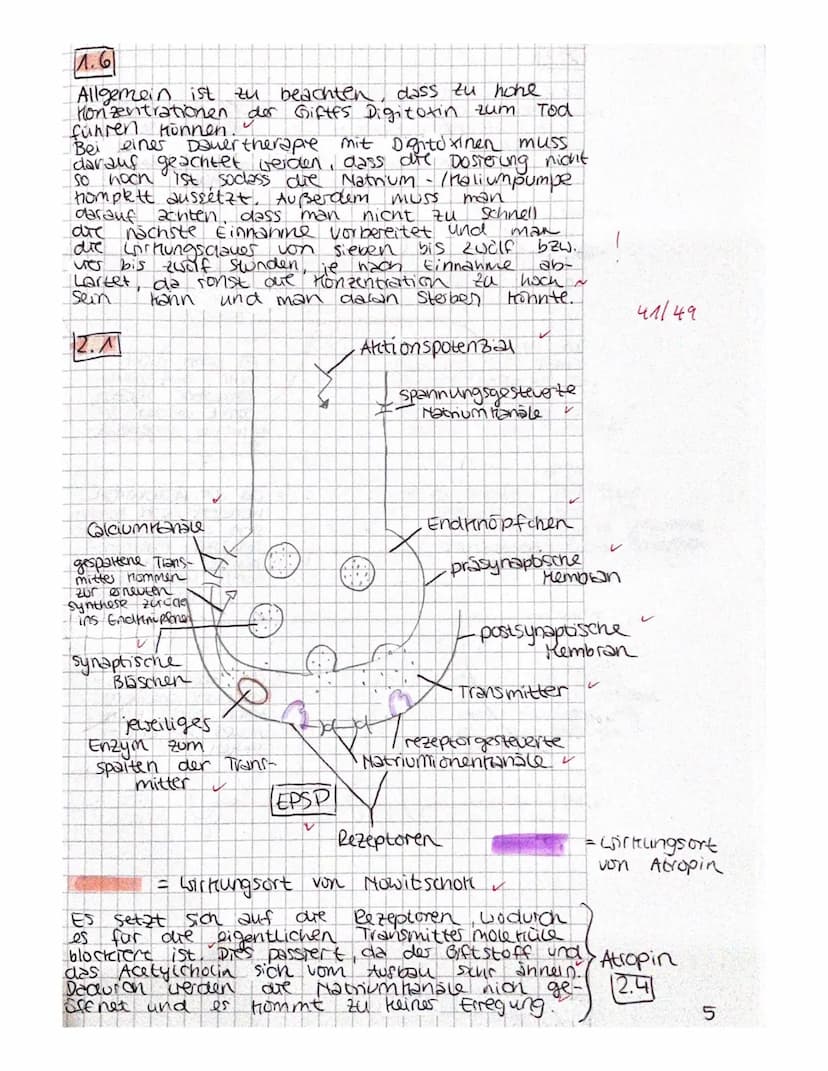 1.6
Allgemein ist zu beachten, dass zu hohe
Konzentrationen der Giftes Digitoxin zum Tod
führen können.
Bei einer Dauertherapie mit Digitoxinen muss
darauf geachtet werden, dass die Dosierung nicht
so hoch ist, sodass die Natrium-/Kaliumpumpe
komplett aussetzt. Außerdem muss man
darauf achten, dass man nicht zu schnell
die nächste Einnahme vorbereitet und man
die Wirkungsdauer von sieben bis zwölf bzw.
vier bis zwölf Stunden, je nach Einnahme ab-
wartet, da sonst die Konzentration zu hoch
sein kann und man daran sterben könnte.
!
41/49
2.1
Aktionspotenzial
spannungsgesteuerte
Natriumkanäle
Calciumkanäle
Endknöpfchen
gespaltene Trans-
mitter kommen
zur erneuten
synthese zurück
ins Endknöpfchen
präsynaptische
Membran
postsynaptische
Membran
synaptische
Bläschen
Transmitter
jeweiliges
Enzym zum
spalten der Trans-
mitter
rezeptorgesteuerte
Natriumionenkanäle
EPSP
Rezeptoren
= Wirkungsort
von Atropin
= Wirkungsort von Nowitschok
Es setzt sich auf die Rezeptoren, wodurch
es für die eigentlichen Transmittermoleküle
blockiert ist. Dies passiert, da der Giftstoff und
das Acetylcholin sich vom Aufbau sehr ähneln.
Dadurch werden die Natriumkanäle nich ge-
öffnet und es kommt zu keiner Erregung.
Atropin
2.4
5